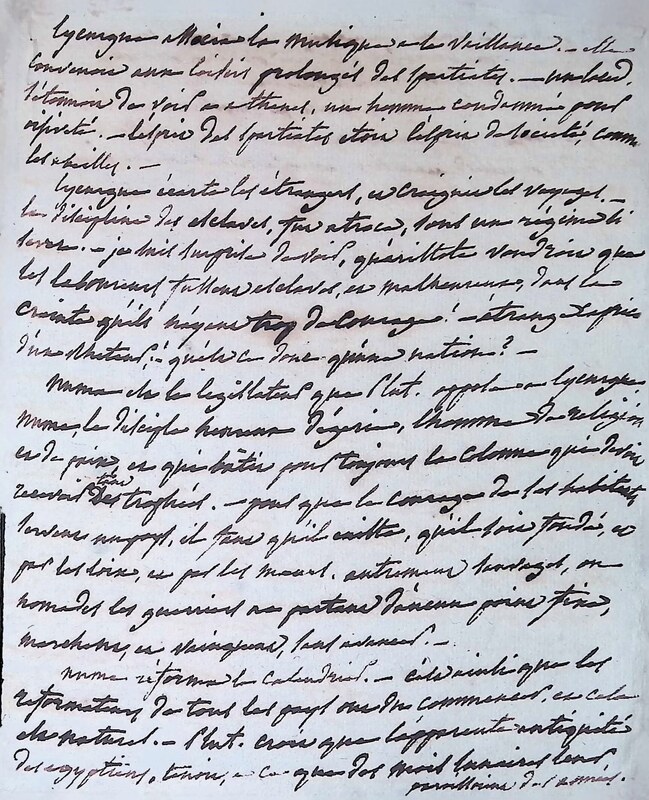 Lycurgue associa la musique a la vaillance. – elle
convenoit aux loisirs prolongés des spartiates. – un laced.
s'étonnoit de voir a athenes, un homme condamné pour
oisiveté. – l'esprit des spartiates etoit l'esprit de societé, comme
les abeilles. –
Lycurgue écarta les étrangers, et craignit les voyages. –
la discipline des esclaves, fut atroce, sous un régime si
severe. – je suis surprise de voir, qu'aristote voudroit que
les laboureurs fussent esclaves, et malheureux, dans la
crainte qu'ils n'ayent trop de courage! – étrange
d'un rheteur! qu'est ce donc qu'une nation? –
numa est le legislateur que Plut. oppose a lycurgue
numa, le disciple heureux d'égerie, l'homme de religion
et de paix, et qui bâtit pour toujours la colonne qui devoit
recevoir tant des trophées. – pour que le courage de ses habitants
serve un pays, il faut qu'il existe, qu'il soit fondé, et
par les loix, et par les moeurs. autrement sauvages, ou
nomades les guerriers ne partant d'aucun point fixe,
marchent, et vainquent, sans avancer. –
numa réforma le calendrier. – c'est ainsi que les
reformateurs de tous les pays ont du commencer, et cela
est naturel. – Plut. croit que l'apparente antiquité
des egyptiens, tenoit, a ce que des mois lunaires leur
des années.